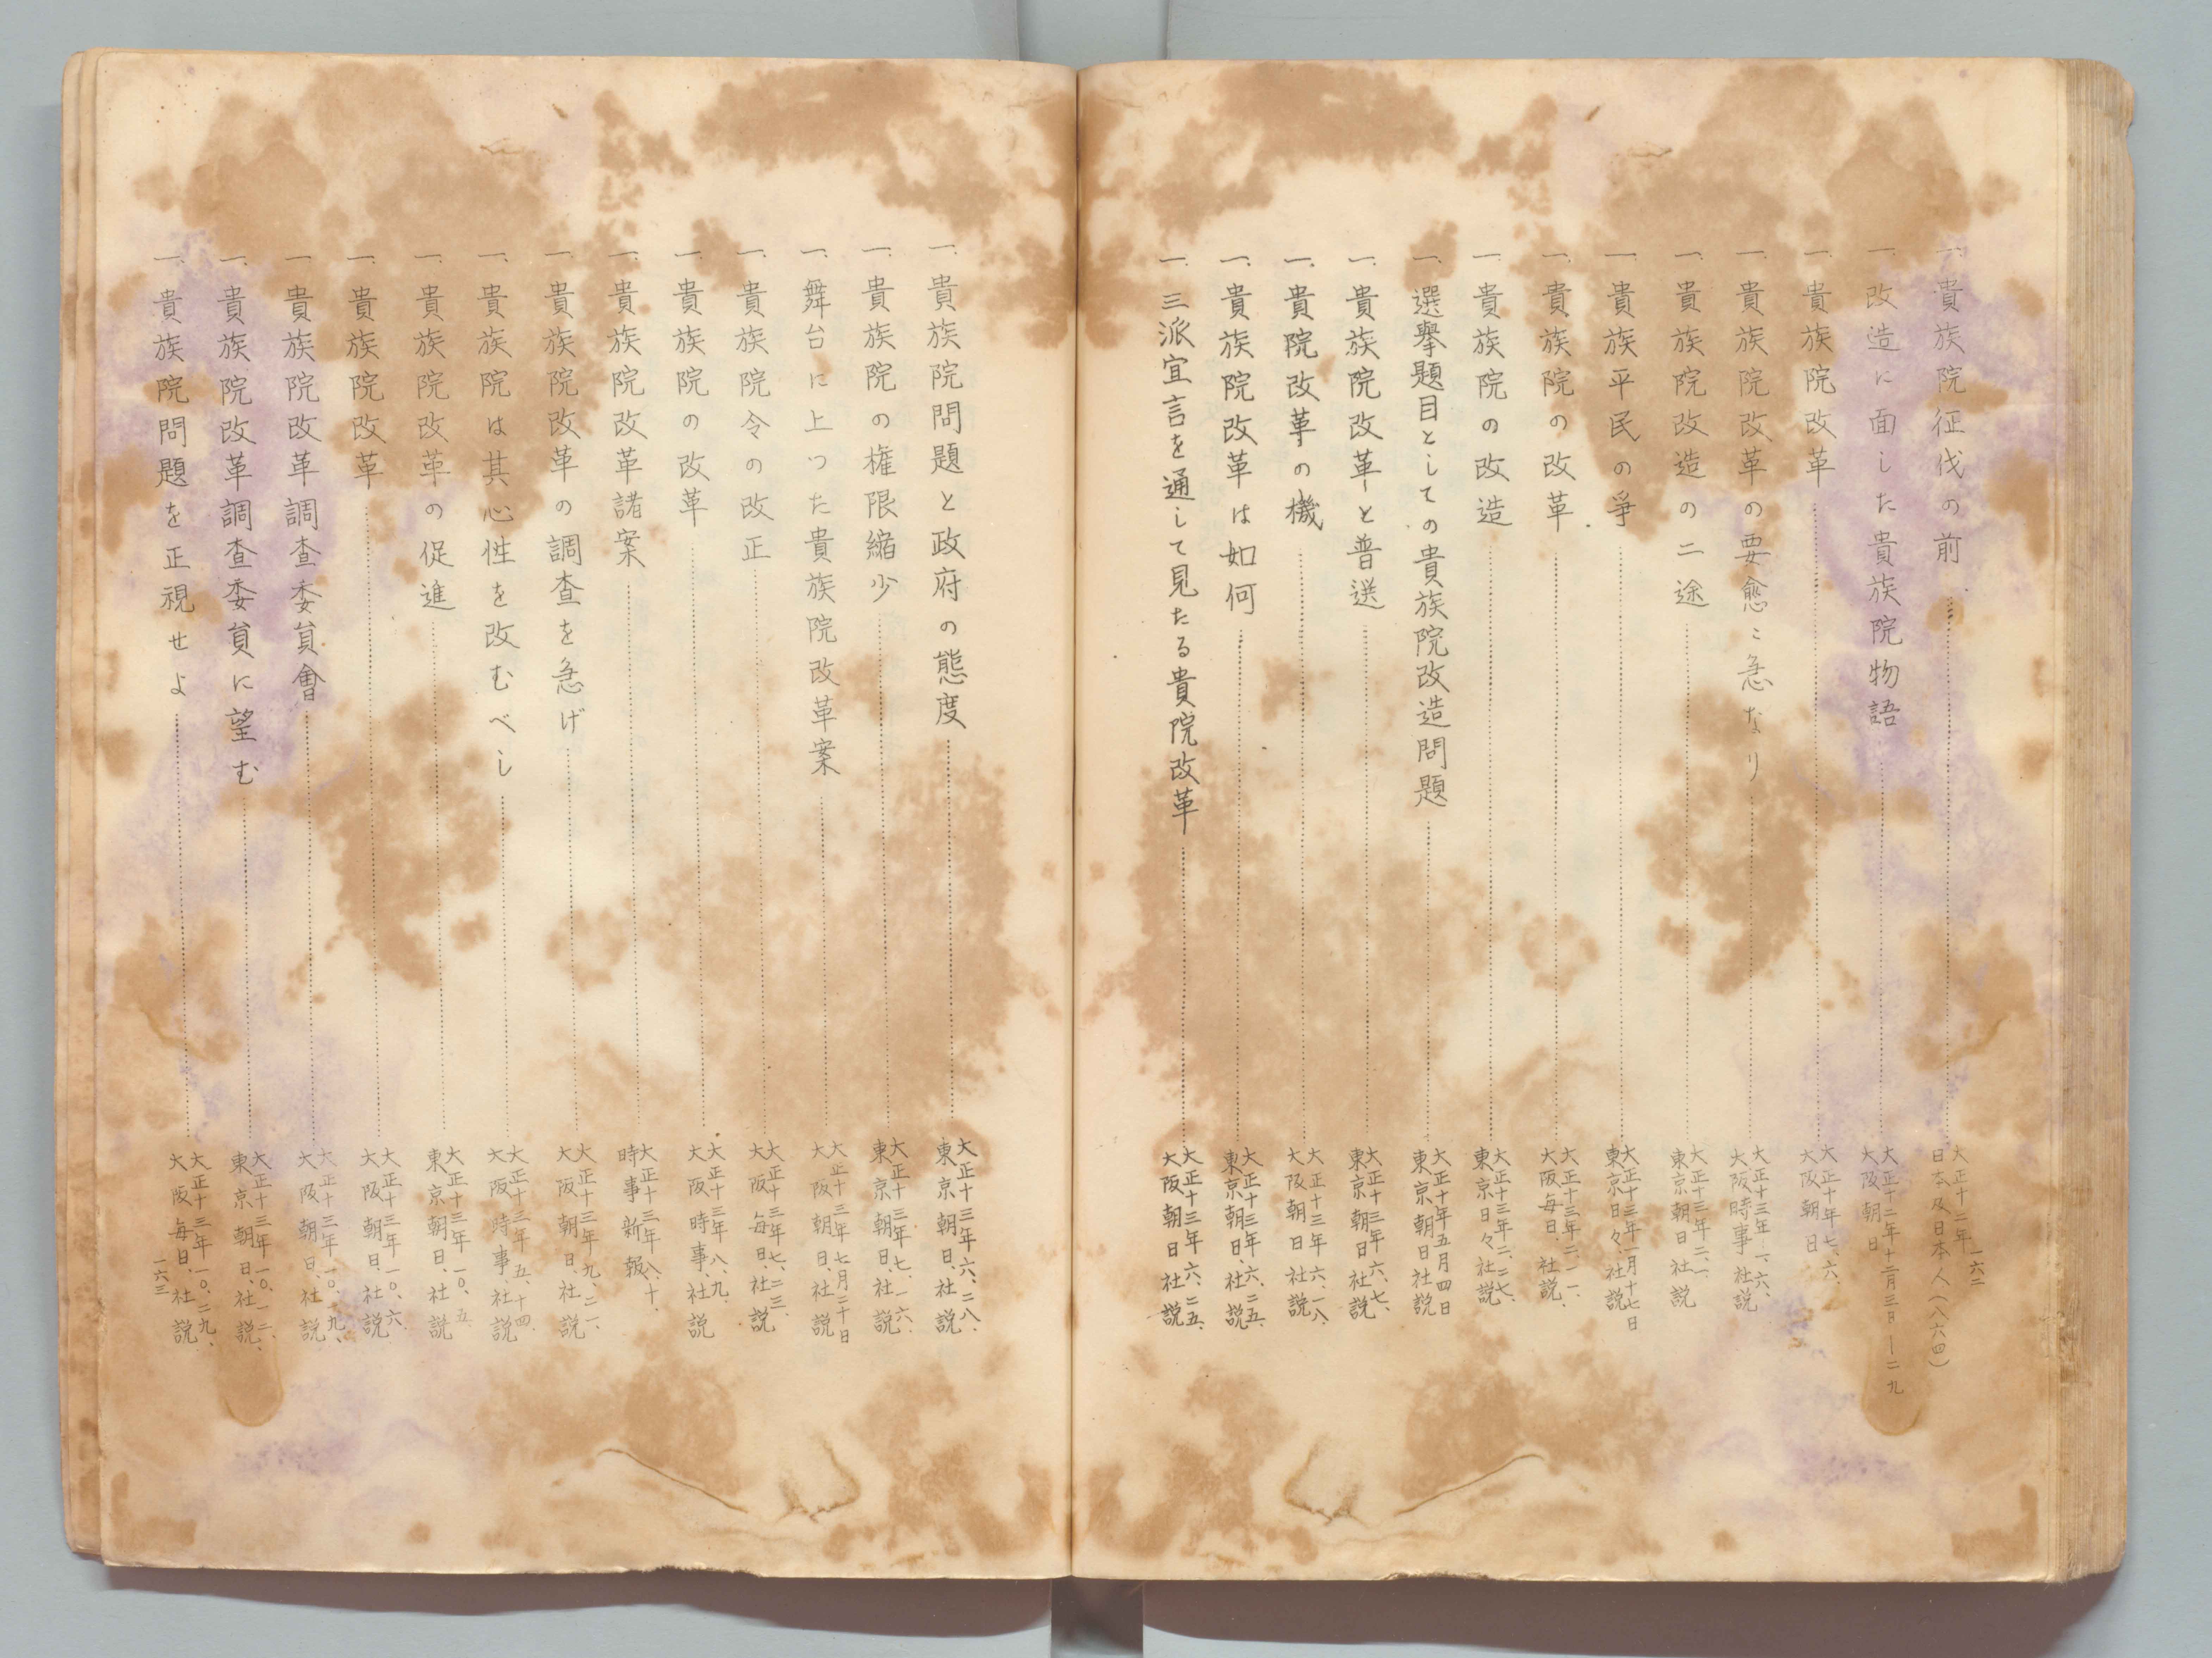 一、貴族院征伐の前……大正十二年 日本及日本人(八六四)
一六二
一、改造に面した貴族院物語……大正十二年十二月三日—二九 大阪朝日
一、貴族院改革……大正十年七、六、大阪朝日
一、貴族院改革の要愈〻急なり……大正十三年一、六、大阪時事 社説
一、貴族院改造の二途……大正十三年二、一、東京朝日社説
一、貴族平民の爭……大正十三年一月十七日 東京日々、社説
一、貴族院の改革……大正十三年二、一一、大阪毎日、社説、
一、貴族院の改造……大正十三年二、二七、東京日々社説
一、選擧題目としての貴族院改造問題……大正十年五月四日 東京朝日社説
一、貴族院改革と普選……大正十三年六、七、東京朝日社説
一、貴院改革の機……大正十三年六、一八、大阪朝日社説
一、貴族院改革は如何……大正十三年六、二五、東京朝日、社説
一、三派宣言を通して見たる貴院改革……大正十三年六、二五、大阪朝日社説
一、貴族院問題と政府の態度……大正十三年六、二八、東京朝日、社説
一、貴族院の権限縮少……大正十三年七、一六、東京朝日、社説
一、舞台に上つた貴族院改革案……大正十三年七月二十日 大阪朝日、社説
一、貴族院令の改正……大正十三年七、二三、大阪毎日、社説
一、貴族院の改革……大正十三年八、九、大阪時事、社説
一、貴族院改革諸案……大正十三年八、十、時事新報、
一、貴族院改革の調査を急げ……大正十三年九、二一、大阪朝日、社説
一、貴族院は其心性を改むべし……大正十三年五、十四、大阪時事社説
一、貴族院改革の促進……大正十三年一〇、五、東京朝日、社説
一、貴族院改革……大正十三年一〇、六、大阪朝日、社説
一、貴族院改革調査委員會……大正十三年一〇、九、大阪朝日、社説
一、貴族院改革調査委員に望む……大正十三年一〇、一二、東京朝日、社説、
一、貴族院問題を正視せよ……大正十三年一〇、二九、大阪毎日、社説
一六三